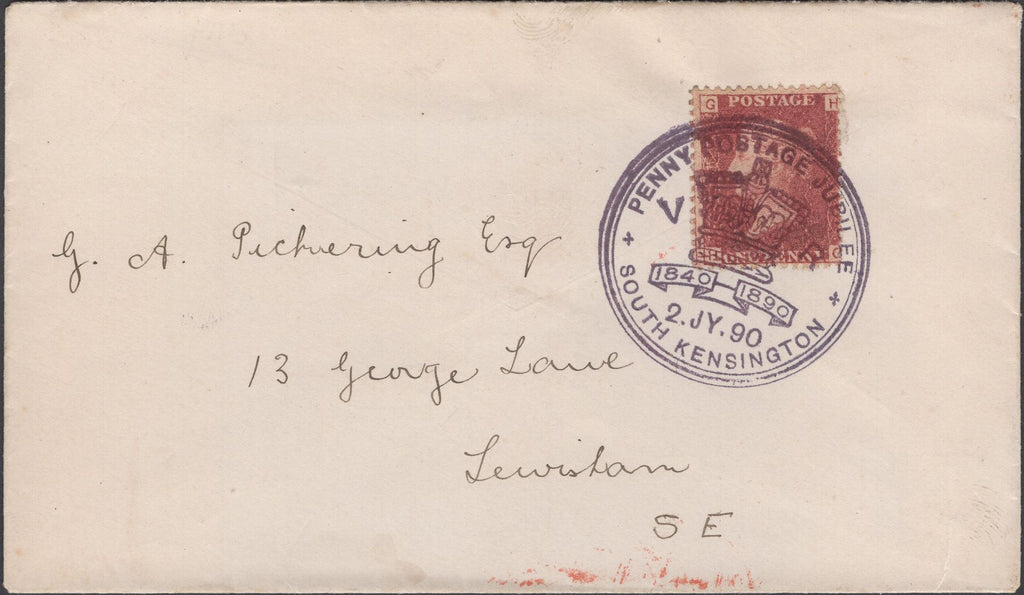 G POSTAGE H
PENNY POSTAGE JUBILEE
V R
1840 1890
2.JY.90
SOUTH KENSINGTON
G. A. Pickvering Esq
13 George Lane
Lewisham
S E